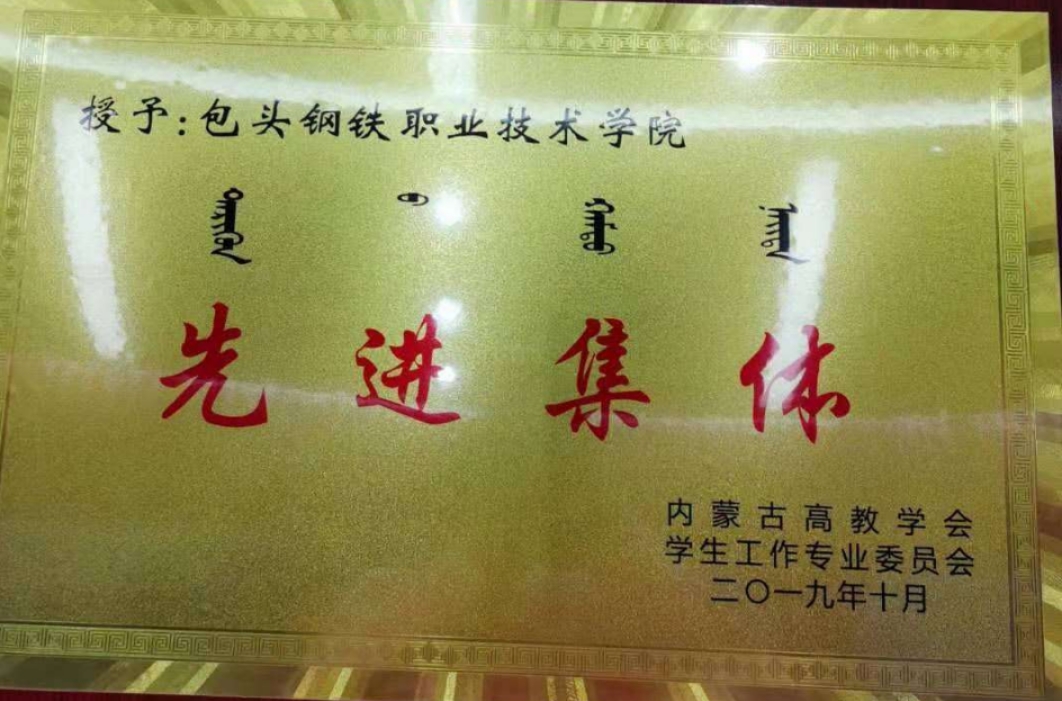 授予:包头钢铁职业技术学院
先进集体
内蒙古高教学会
学生工作专业委员会
二〇一九年十月